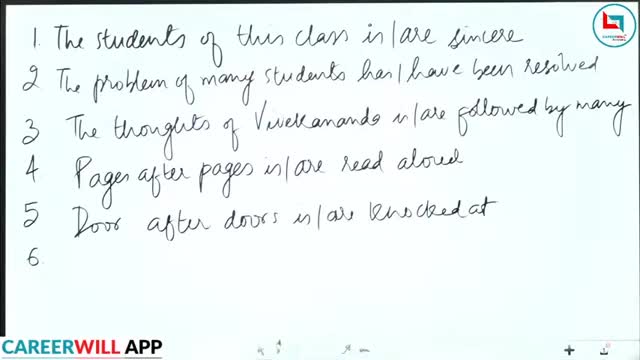 CAREERWILL
1. The students of this class is/are sincere
2 The problem of many students has/have been resolved
3 The thoughts of Vivekananda is/are followed by many
4 Pages after pages is/are read aloud
5 Door after doors is/are knocked at
6.
CAREERWILL APP